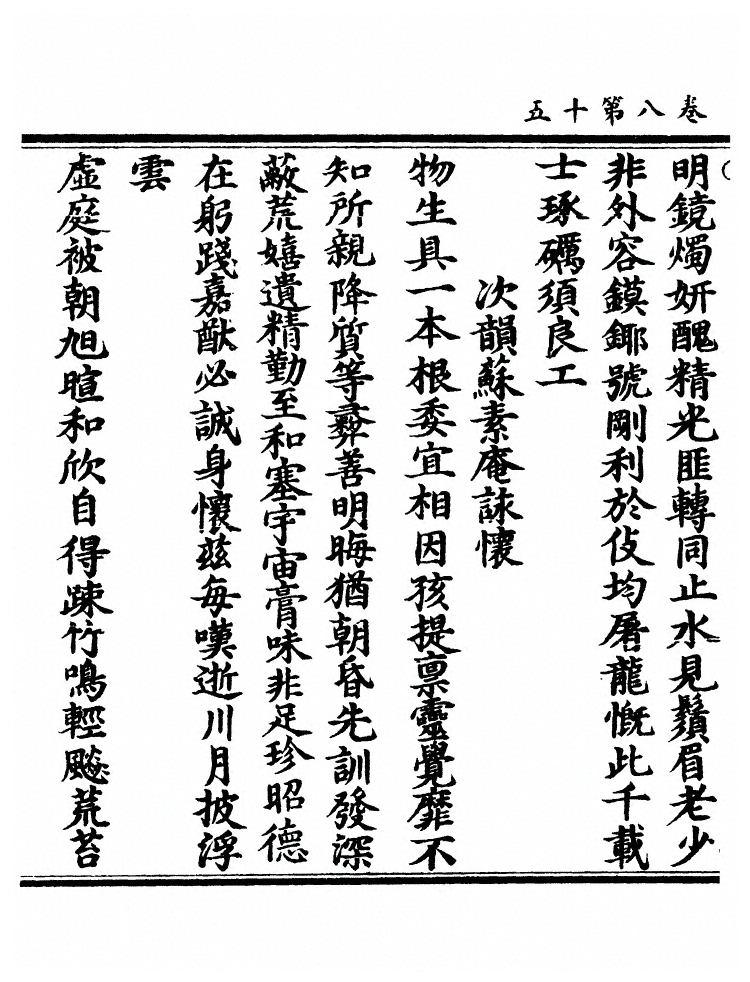 卷八第十五
明鏡燭妍醜精光匪轉同止水見鬚眉老少
非外容鏌鎁號剛利於伎均屠龍慨此千載
士琢礪須良工
次韻蘇素庵詠懷
物生具一本根委宜相因孩提禀靈覺靡不
知所親降質等彛善明晦猶朝昏先訓發深
蔽荒嬉遺精勤至和塞宇宙膏味非足珍昭德
在躬踐嘉猷必誠身懷兹每嘆逝川月披浮
雲
虛庭被朝旭暄和欣自得踈竹鳴輕飈荒苔